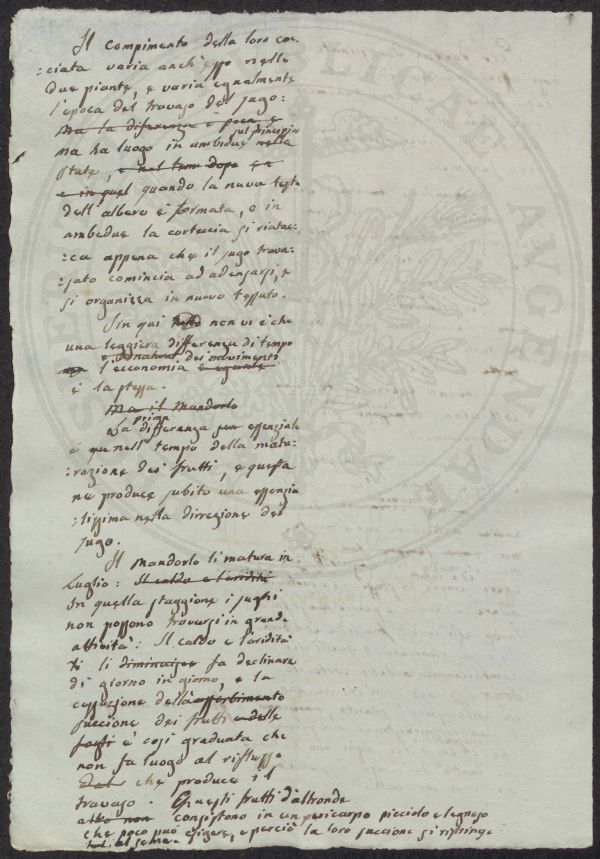 Il Compimento della loro cor-
:ciata varia anch'esso nelle
due piante, e varia egualmente
l'epoca del travaso del sugo:
Ma la diferenza è poca e
sul principio
ma ha luogo in ambidue nella
state, e nel tem dopo
e in quel quando la nuova testa
dell'albero è formata, e in
ambedue la corteccia si riatac:
:ca appena che il sugo trava:
:sato comincia ad adensarsi, e
si organizza in nuovo tessuto.
Sin qui tutto non vi è che
una leggiera differenza di tempo
e natura dei movimenti
l'economia e eguale
è la stessa.
Ma il Mandorlo
prima
La differenza essenziale
è nell'tempo della matu:
:razione dei frutti, e questa
ne produce subito una essenzia
:lissima nella dirrezione del
sugo.
Il Mandorlo li matura in
Luglio: Il caldo e l'aridità
In quella staggione i sughi
non possono trovarsi in grande
attività: Il caldo e l'aridità
li diminuisce fa declinare
di giorno in giorno, e la
cessazione della assorbimento
succione dei frutti e delle
foglie è così graduata che
non fa luogo al riflusso
che produce il
travaso. Questi frutti d'altronde
alto non consistono in un pericarpo picciolo e legnoso
che poco può esigere, e perciò la loro succione si ristringe
al seme.